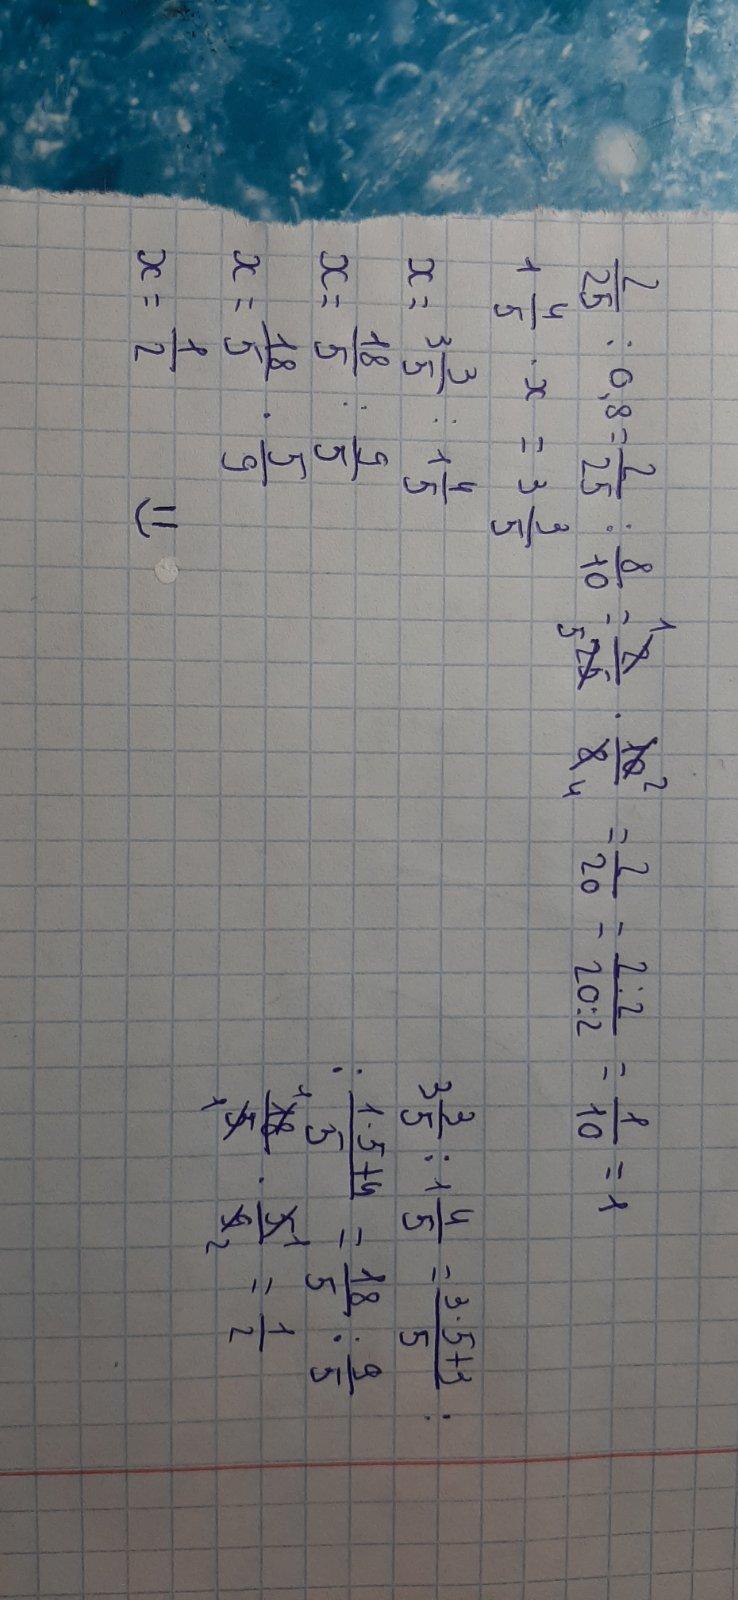 2/25 : 0,8 = 2/25 : 8/10 = 2/25 · 10/8 = 2/20 = 2:2/20:2 = 1/10 = 1
1 4/5 · x = 3 3/5
x = 3 3/5 : 1 4/5
x = 18/5 : 9/5
x = 18/5 · 5/9
x = 1/2
3 3/5 : 1 4/5 = 3·5+3/5 :
: 1·5+4/5 = 18/5 : 9/5
18/5 · 5/9 = 1/2